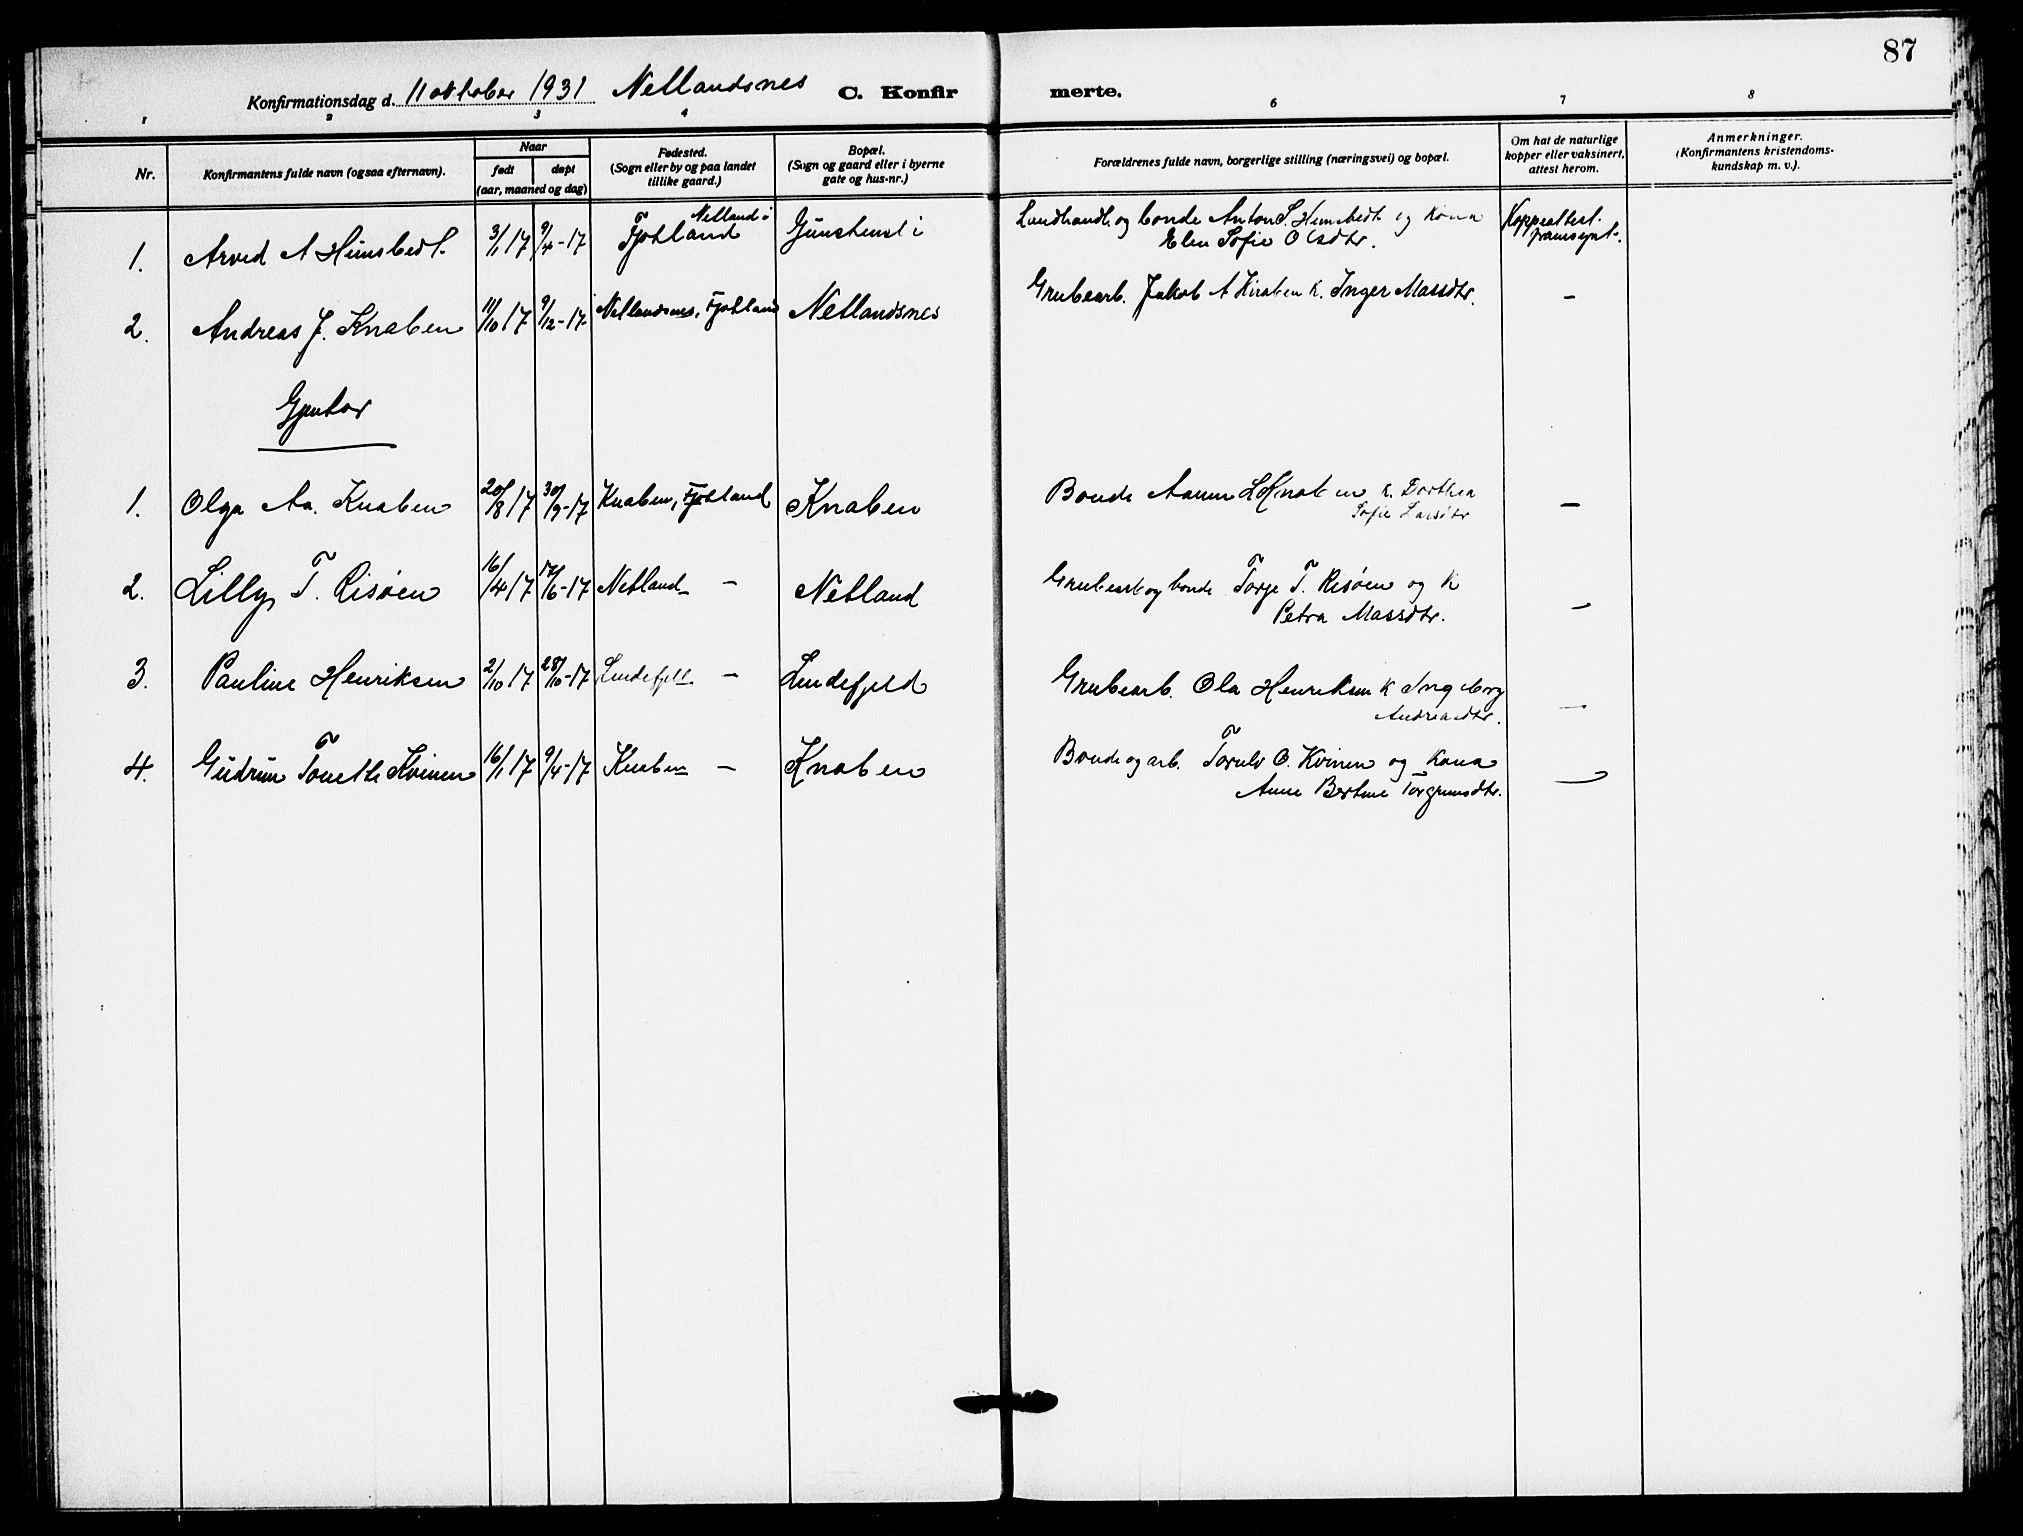 87
Konfirmationsdag d. 11 oktober 1931 Netlandsnes C. Konfirmerte.
1 2 3 4 6 7 8
Nr.
Konfirmantens fulde navn (ogsaa efternavn).
Naar
født døpt
(aar, maaned og dag)
Fødested.
(Sogn eller by og paa landet
tillike gaard.)
Bopæl.
(Sogn og gaard eller i byerne
gate og hus-nr.)
Forældrenes fulde navn, borgerlige stilling (næringsvei) og bopæl.
Om hat de naturlige
kopper eller vaksinert,
attest herom.
Anmerkninger.
(Konfirmantens kristendoms-
kundskap m. v.).
1. Arved A Hunsbedt. 3/1 17 9/4-17 Netland i Fjotland Landhandl. og bonde Anton S. Hunsbedt og kona Koppeattest
Elen Sofie Olsdtr. framsynt.
2. Andreas J. Knaben 11/10 17 9/12-17 Netlandsnes, Fjotland Netlandsnes Grubearb. Jakob A Knaben k. Inger Massdtr. –
Gjentor
1. Olga Aa. Knaben 20/8 17 30/9-17 Knaben, Fjotland Knaben Bonde Aanen L Knaben k. Dorthea –
Sofie Larsdtr
2. Lilly T. Risøen 16/4 17 17/6-17 Netland – Netland Grubearb og bonde Torge T. Risøen og K
Petra Massdtr. –
3. Pauline Henriksen 2/10 17 28/10-17 Lindefjell – Lindefjeld Grubearb. Ola Henriksen k Ingeborg
Andreasdtr. –
4. Gudrun Tonette Kvinen 16/1 17 9/4-17 Knaben – Knaben Bonde og arb. Torulv O. Kvinen og kona
Anne Bertine Torgrimsdtr. –